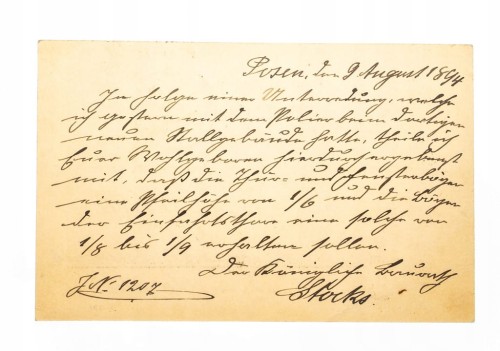 Posen, den 9 August 1894
In folge einer Unterredung, welche
ich gestern mit dem Polier beim dortigen
neuen Stallgebäude hatte, theile ich
Euer Wohlgeboren hierdurch ergebenst
mit, daß die Thür- und Fensterbögen
eine Pfeilhöhe von 1/6 und die Bögen
der Einfahrtsthore eine solche von
1/8 bis 1/9 erhalten sollen.
Der Königliche Baurath
J.N. 1207
Stocks.